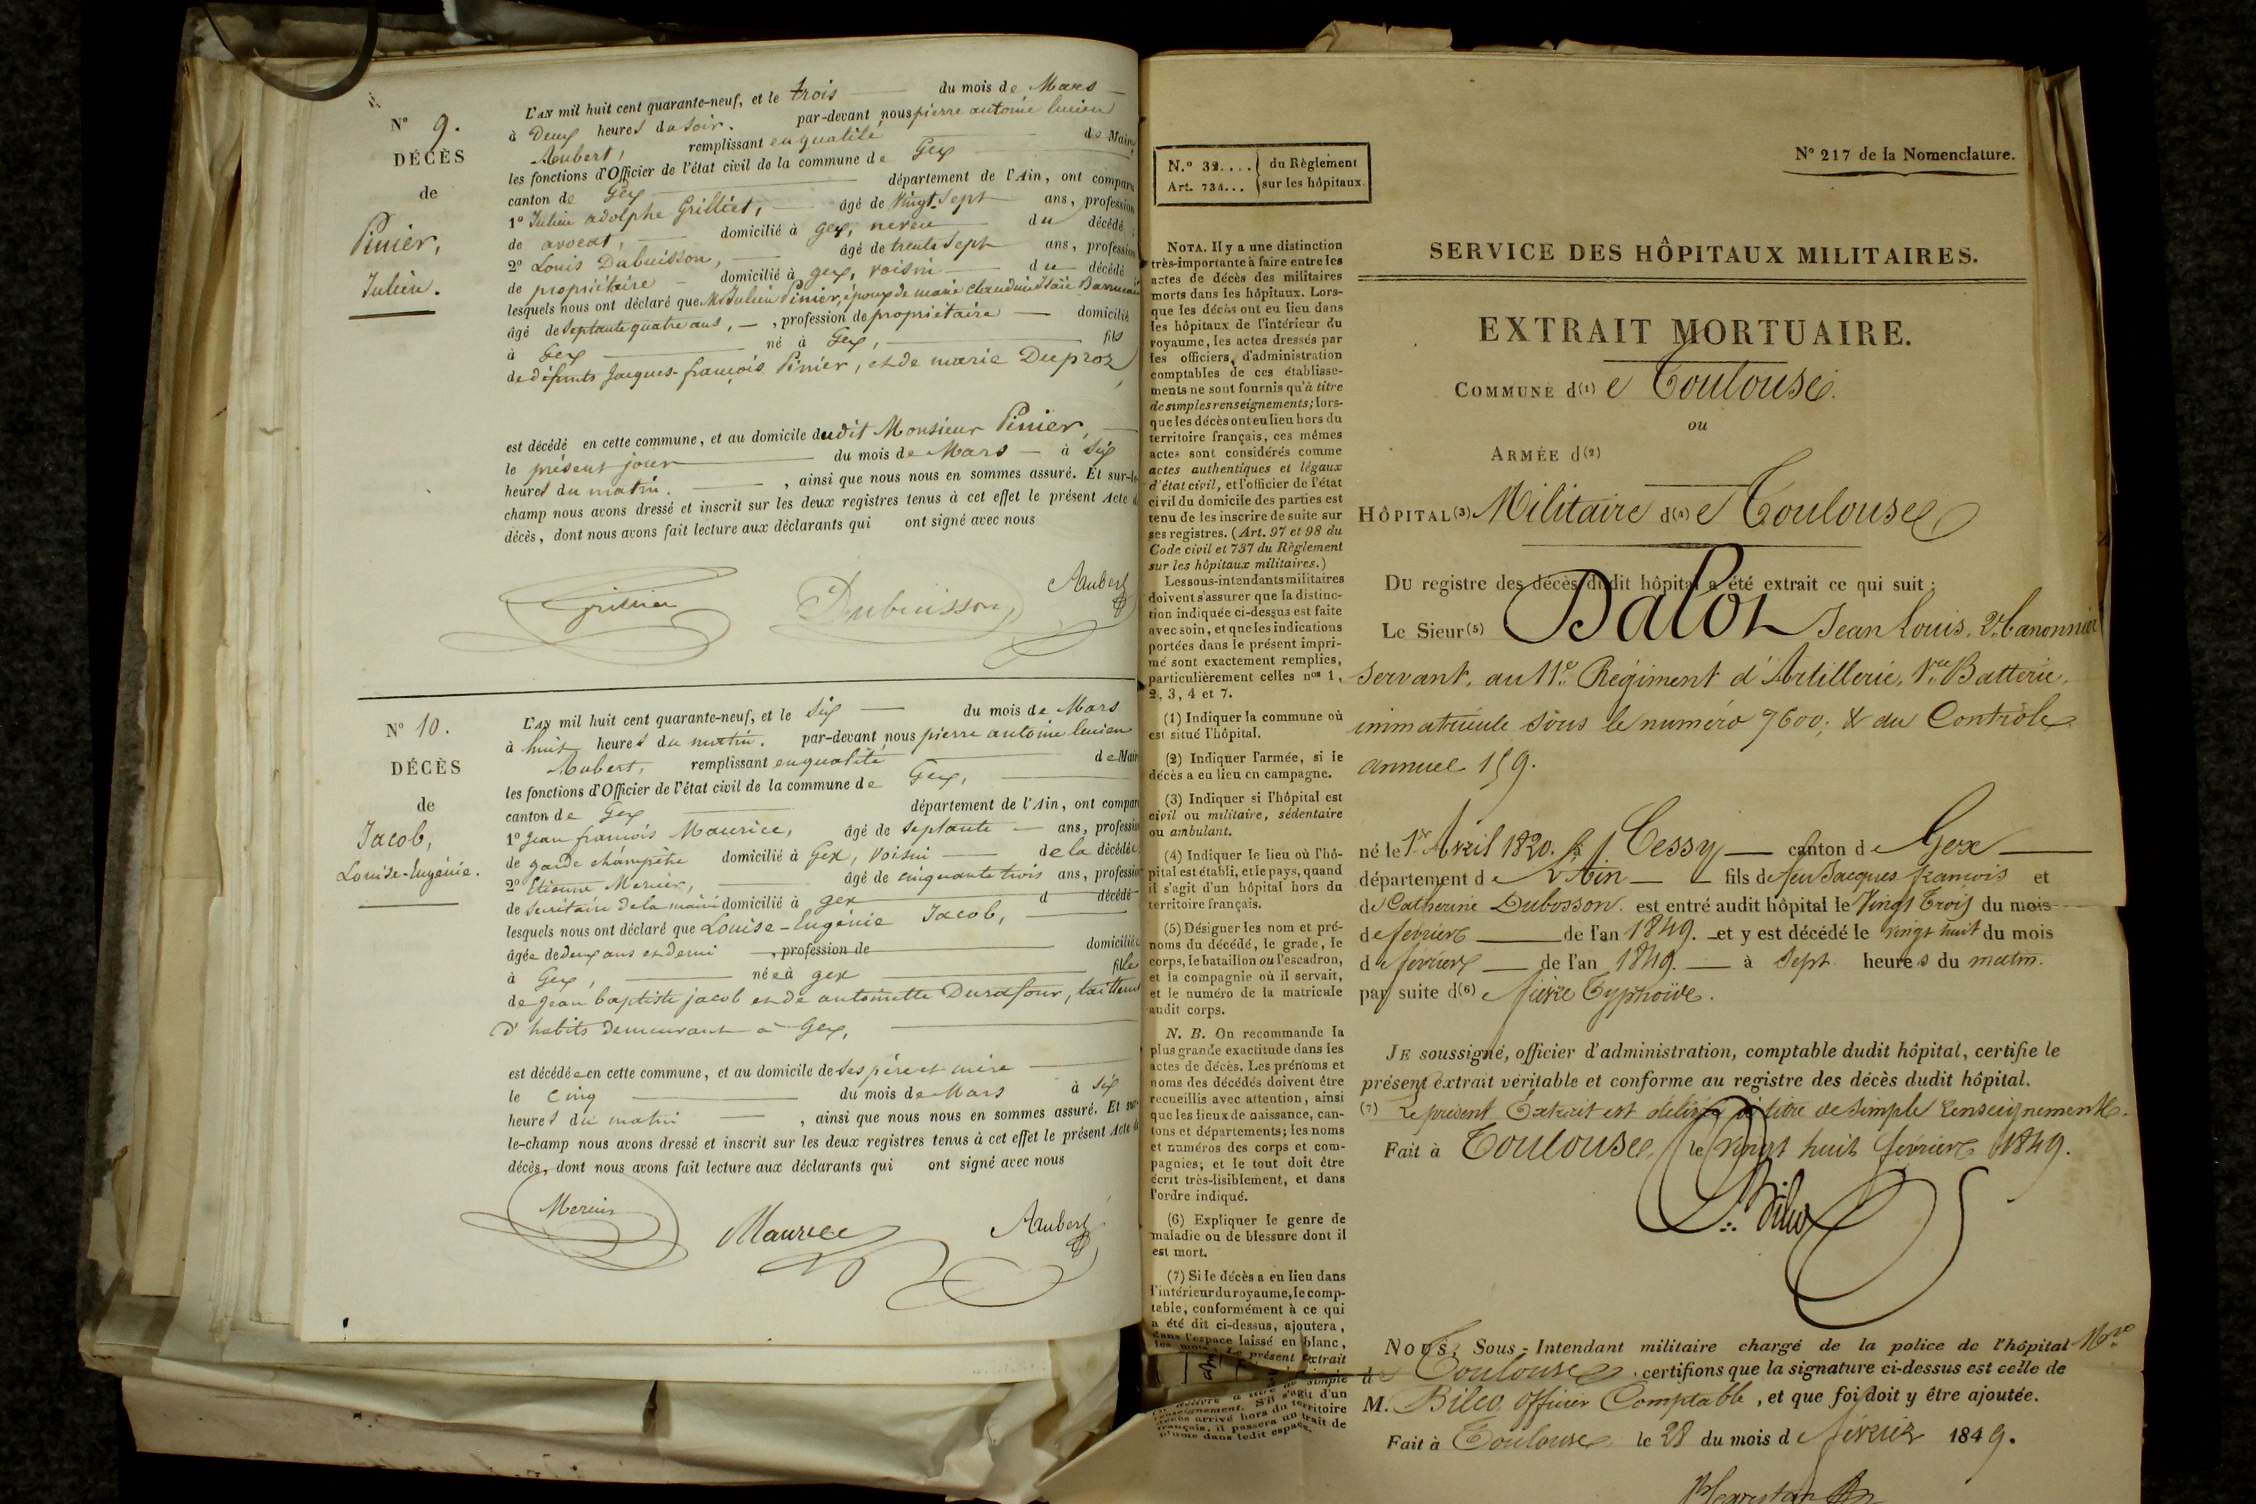 N° 9.
DÉCÈS
de
Pinier,
Julien.
L'AN mil huit cent quarante-neuf, et le trois du mois de Mars
à Deux heures du soir. par-devant nous pierre antoine lucien
Aubert, remplissant en qualité de Maire
les fonctions d'Officier de l'état civil de la commune de Gex
canton de Gex département de l'Ain, ont comparu
1° Julien adolphe Grilliet, âgé de Vingt-Sept ans, profession
de avocat, domicilié à Gex, neveu du décédé;
2° Louis Dubuisson, âgé de trente Sept ans, profession
de propriétaire domicilié à gex, voisin du décédé
lesquels nous ont déclaré que M. Julien Pinier, époux de marie claudine
âgé de septante quatre ans, profession de propriétaire domicilié
à Gex né à Gex, fils
de défunts Jacques-françois Pinier, et de marie Duproz,
est décédé en cette commune, et au domicile dudit Monsieur Pinier,
le présent jour du mois de Mars à Six
heures du matin. , ainsi que nous nous en sommes assuré. Et sur-le-
champ nous avons dressé et inscrit sur les deux registres tenus à cet effet le présent Acte de
décès, dont nous avons fait lecture aux déclarants qui ont signé avec nous
Grilliet Dubuisson Aubert
N° 10.
DÉCÈS
de
Jacob,
Louise-Eugénie.
L'AN mil huit cent quarante-neuf, et le Six du mois de Mars
à huit heures du matin. par-devant nous pierre antoine lucien
Aubert, remplissant en qualité de Maire
les fonctions d'Officier de l'état civil de la commune de Gex,
canton de Gex département de l'Ain, ont comparu
1° Jean françois Maurice, âgé de septante ans, profession
de garde champêtre domicilié à Gex, voisin de la décédée
2° Etienne Mercier, âgé de cinquante trois ans, profession
de secrétaire de la mairie domicilié à gex d décédé
lesquels nous ont déclaré que Louise-Eugénie Jacob,
âgée de deux ans et demi , profession de domiciliée
à Gex, née à gex fille
de Jean baptiste jacob et de antoinette Durafour, tailleur
d'habits demeurant à Gex,
est décédée en cette commune, et au domicile de ses père et mère
le cinq du mois de Mars à Six
heures du matin , ainsi que nous nous en sommes assuré. Et sur-
le-champ nous avons dressé et inscrit sur les deux registres tenus à cet effet le présent Acte de
décès, dont nous avons fait lecture aux déclarants qui ont signé avec nous
Mercier Maurice Aubert
N.° 32.... du Règlement
Art. 734... sur les hôpitaux.
NOTA. Il y a une distinction
très-importante à faire entre les
actes de décès des militaires
morts dans les hôpitaux. Lors-
que les décès ont eu lieu dans
les hôpitaux de l'intérieur du
royaume, les actes dressés par
les officiers d'administration
comptables de ces établisse-
ments ne sont fournis qu'à titre
de simples renseignements; lors-
que les décès ont eu lieu hors du
territoire français, ces mêmes
actes sont considérés comme
actes authentiques et légaux
d'état civil, et l'officier de l'état
civil du domicile des parties est
tenu de les inscrire de suite sur
ses registres. (Art. 97 et 98 du
Code civil et 737 du Règlement
sur les hôpitaux militaires.)
Les sous-intendants militaires
doivent s'assurer que la distinc-
tion indiquée ci-dessus est faite
avec soin, et que les indications
portées dans le présent impri-
mé sont exactement remplies,
particulièrement celles nos 1,
2, 3, 4 et 7.
(1) Indiquer la commune où
est situé l'hôpital.
(2) Indiquer l'armée, si le
décès a eu lieu en campagne.
(3) Indiquer si l'hôpital est
civil ou militaire, sédentaire
ou ambulant.
(4) Indiquer le lieu où l'hô-
pital est établi, et le pays, quand
il s'agit d'un hôpital hors du
territoire français.
(5) Désigner les nom et pré-
noms du décédé, le grade, le
corps, le bataillon ou l'escadron,
et la compagnie où il servait,
et le numéro de la matricule
audit corps.
N. B. On recommande la
plus grande exactitude dans les
actes de décès. Les prénoms et
noms des décédés doivent être
recueillis avec attention, ainsi
que les lieux de naissance, can-
tons et départements; les noms
et numéros des corps et com-
pagnies; et le tout doit être
écrit très-lisiblement, et dans
l'ordre indiqué.
(6) Expliquer le genre de
maladie ou de blessure dont il
est mort.
(7) Si le décès a eu lieu dans
l'intérieur du royaume, le comp-
table, conformément à ce qui
a été dit ci-dessus, ajoutera,
dans l'espace laissé en blanc,
les mots: Le présent extrait
simple
renseignement. S'il s'agit d'un
décès arrivé hors du territoire
français, il passera un trait de
plume dans ledit espace.
N° 217 de la Nomenclature.
SERVICE DES HÔPITAUX MILITAIRES.
EXTRAIT MORTUAIRE.
COMMUNE d(1) e Toulouse.
ou
ARMÉE d(2)
HÔPITAL(3) Militaire d(4) e Toulouse
DU registre des décès dudit hôpital a été extrait ce qui suit:
Le Sieur(5) Baloz Jean Louis, 2e Canonnier
servant, au 11e Régiment d'Artillerie, 1re Batterie,
immatricule sous le numéro 7600; & du Contrôle
annuel 159.
né le 1er Avril 1820. à Cessy canton de Gex
département de l'Ain fils de feu Jacques françois et
de Catherine Dubosson. est entré audit hôpital le Vingt Trois du mois
de février de l'an 1849. et y est décédé le vingt huit du mois
de février de l'an 1849. à sept heures du matin.
par suite d(6) fièvre Typhoïde.
JE soussigné, officier d'administration, comptable dudit hôpital, certifie le
présent extrait véritable et conforme au registre des décès dudit hôpital.
(7) Le présent Extrait est délivré à titre de simple renseignement.
Fait à Toulouse, le vingt huit février 1849.
Bilco
NOUS, Sous-Intendant militaire chargé de la police de l'hôpital Mre
de Toulouse, certifions que la signature ci-dessus est celle de
M. Bilco officier Comptable, et que foi doit y être ajoutée.
Fait à Toulouse le 28 du mois d février 1849.